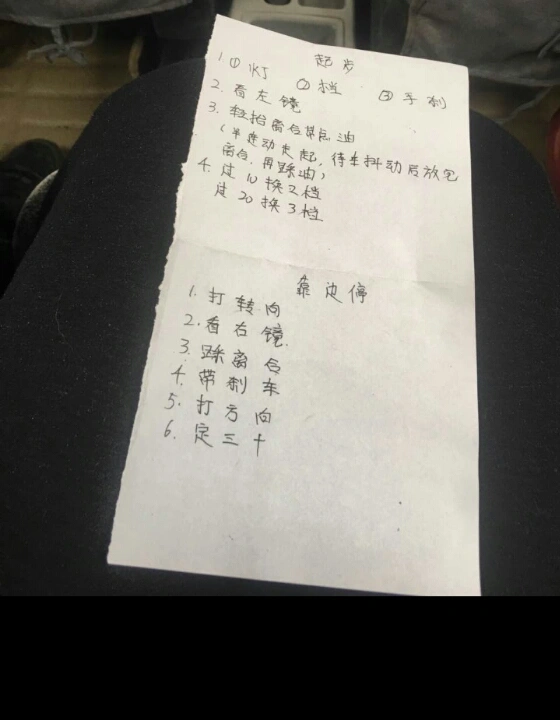 起步
1. ① ② 档 ③ 手刹
2. 看左镜
3. 轻抬离合某点油
(半连动走起,待车抖动后放完
离合.再踩油)
4. 过10换2档
过20换3档
靠边停
1. 打转向
2. 看右镜.
3. 踩离合
4. 带刹车
5. 打方向
6. 定三十